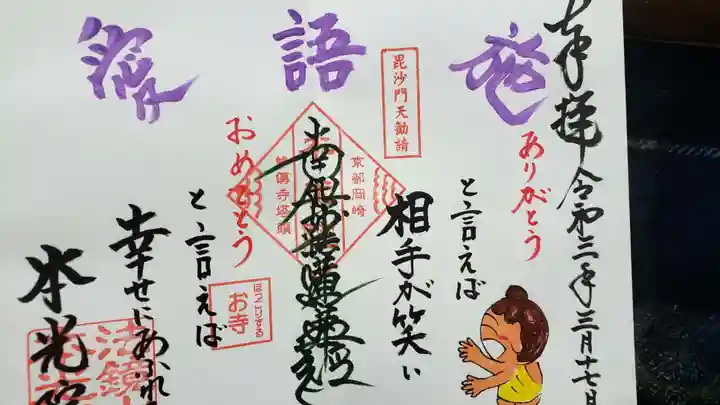 奉拝 令和三年三月十七日
発
ありがとう
と言えば
相手が笑い
毘沙門天勧請
語
京都岡崎
南無妙法蓮華経
おめでとう
と言えば
ほっこりする
お寺
幸せにあふれ
本光院